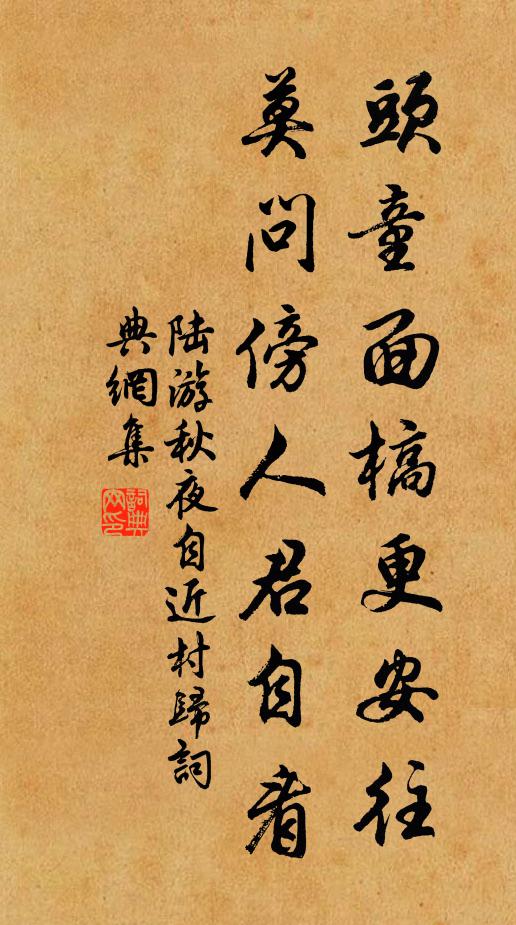 頭童面槁更安往
莫問傍人君自看
陆游秋夜自近村歸詞
典網集
詞典网印